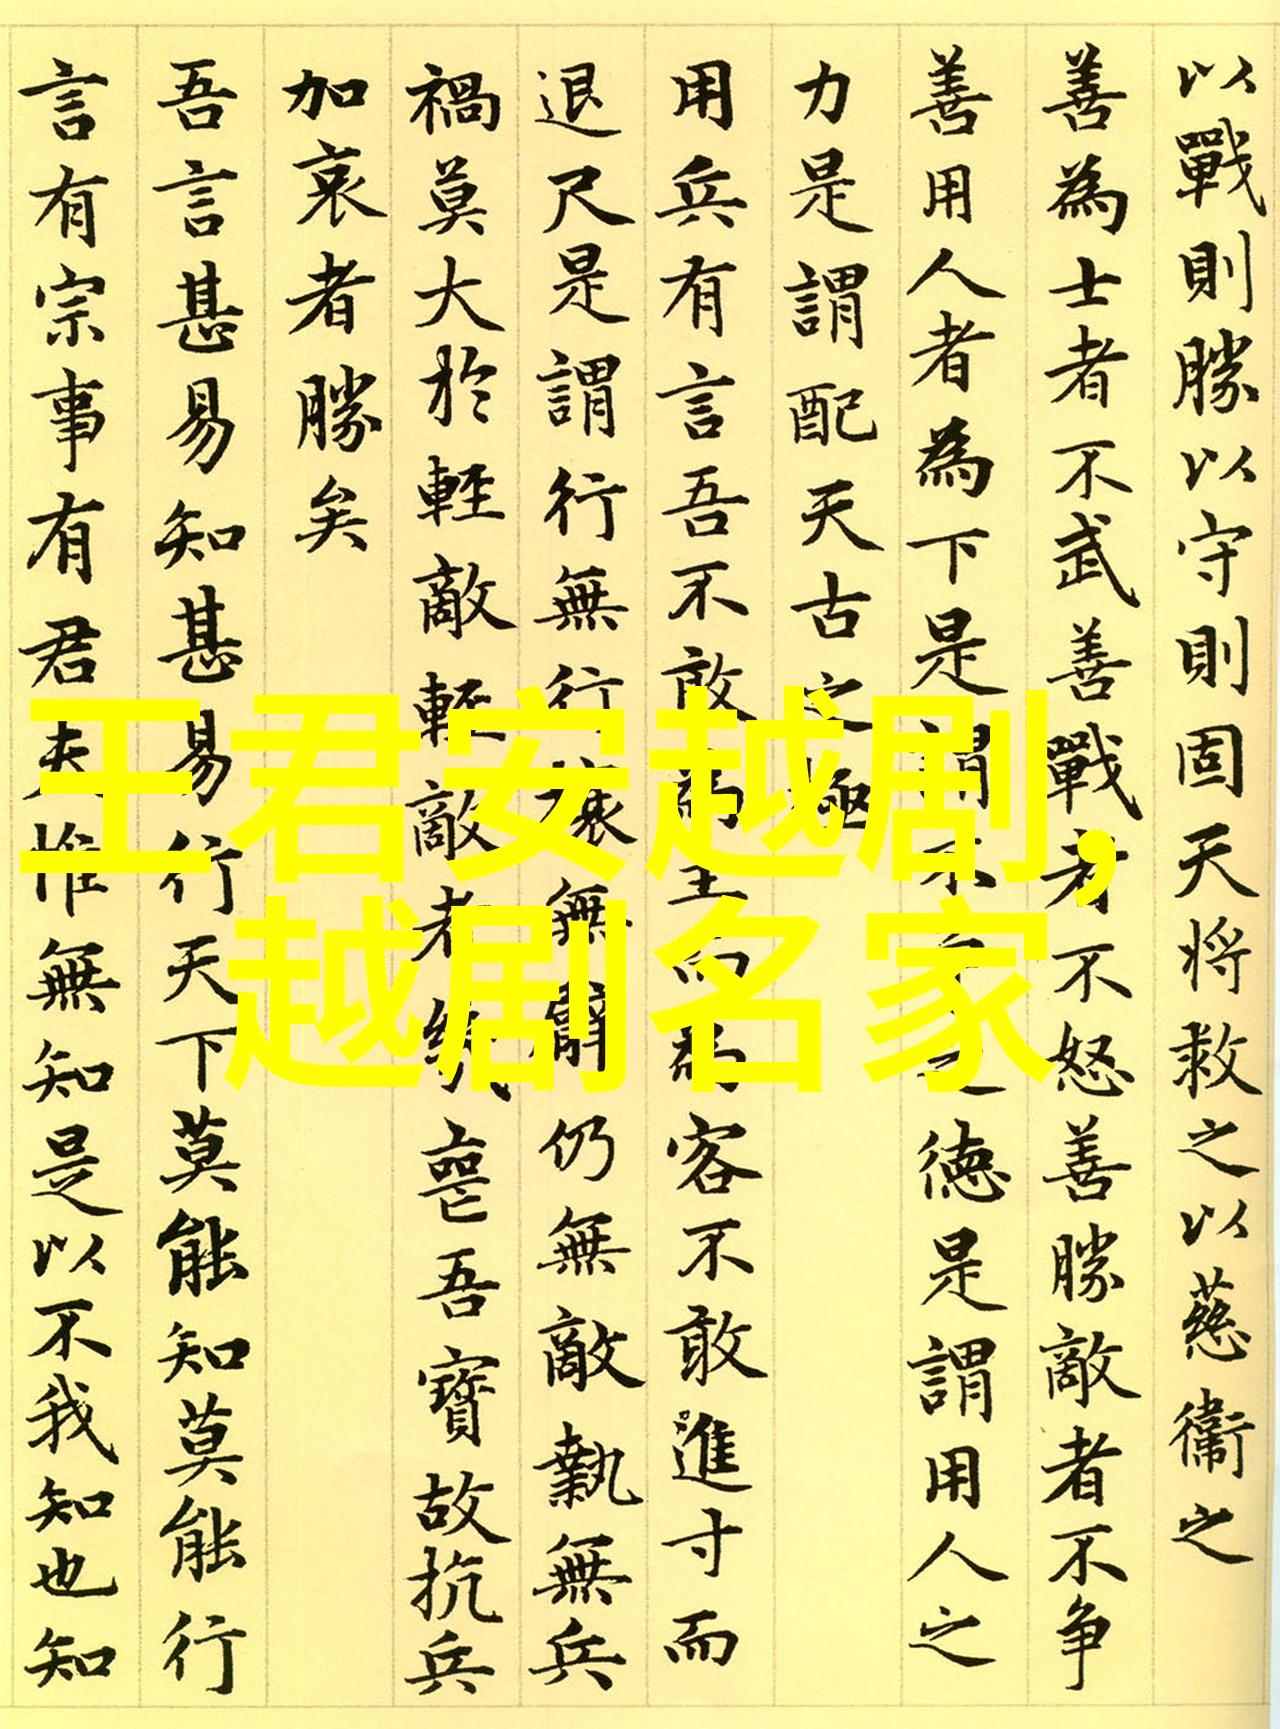 以戰則勝以守則固天将救之以慈衞之
善為士者不武善戰者不怒善勝敵者不争
善用人者為下是謂不之德是謂用人之
力是謂配天古之極
用兵有言吾不敢為主而為客不敢進寸而
退尺是謂行無行攘無臂仍無敵執無兵
禍莫大於輕敵輕敵者幾喪吾寶故抗兵
加哀者勝矣
吾言甚易知甚易行天下莫能知莫能行
言有宗事有君夫惟無知是以不我知也知
王君安越剧,
越剧名家